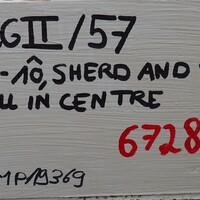 GII/57
-10, SHERD AND
IN CENTRE
6728
MP/19369